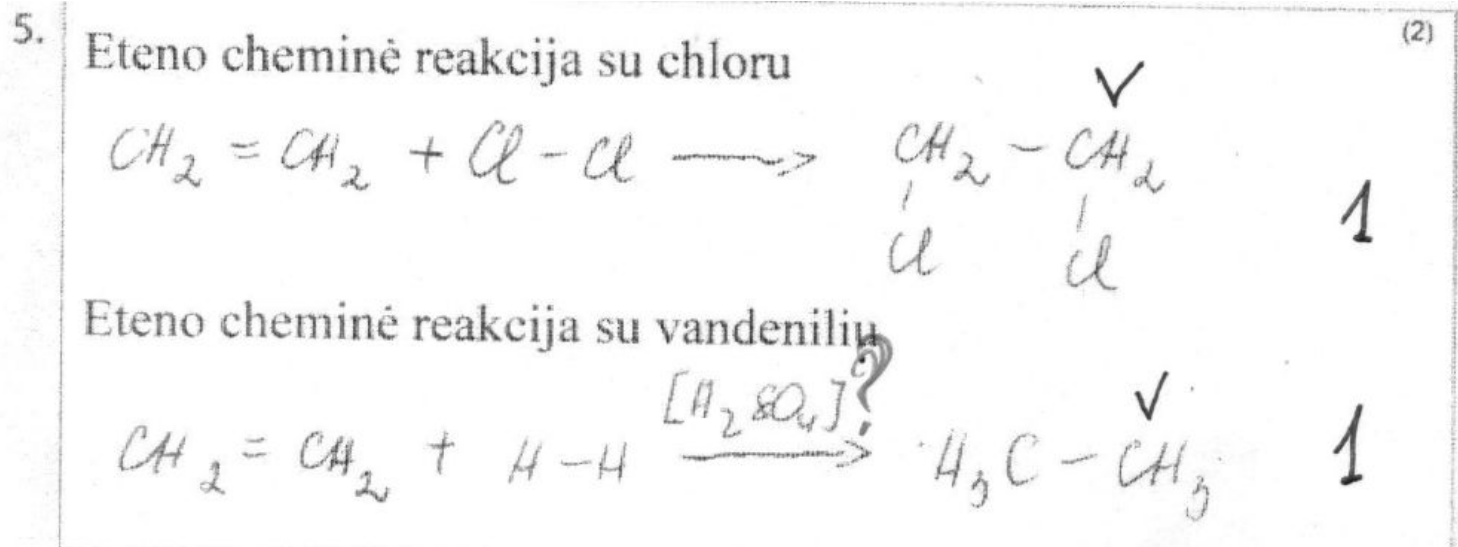 5. (2)
Eteno cheminė reakcija su chloru
✓
CH₂ = CH₂ + Cl - Cl ⟶ CH₂ - CH₂
Cl Cl
1
Eteno cheminė reakcija su vandeniliu
[H₂SO₄]? ✓
CH₂ = CH₂ + H - H ⟶ H₃C - CH₃ 1